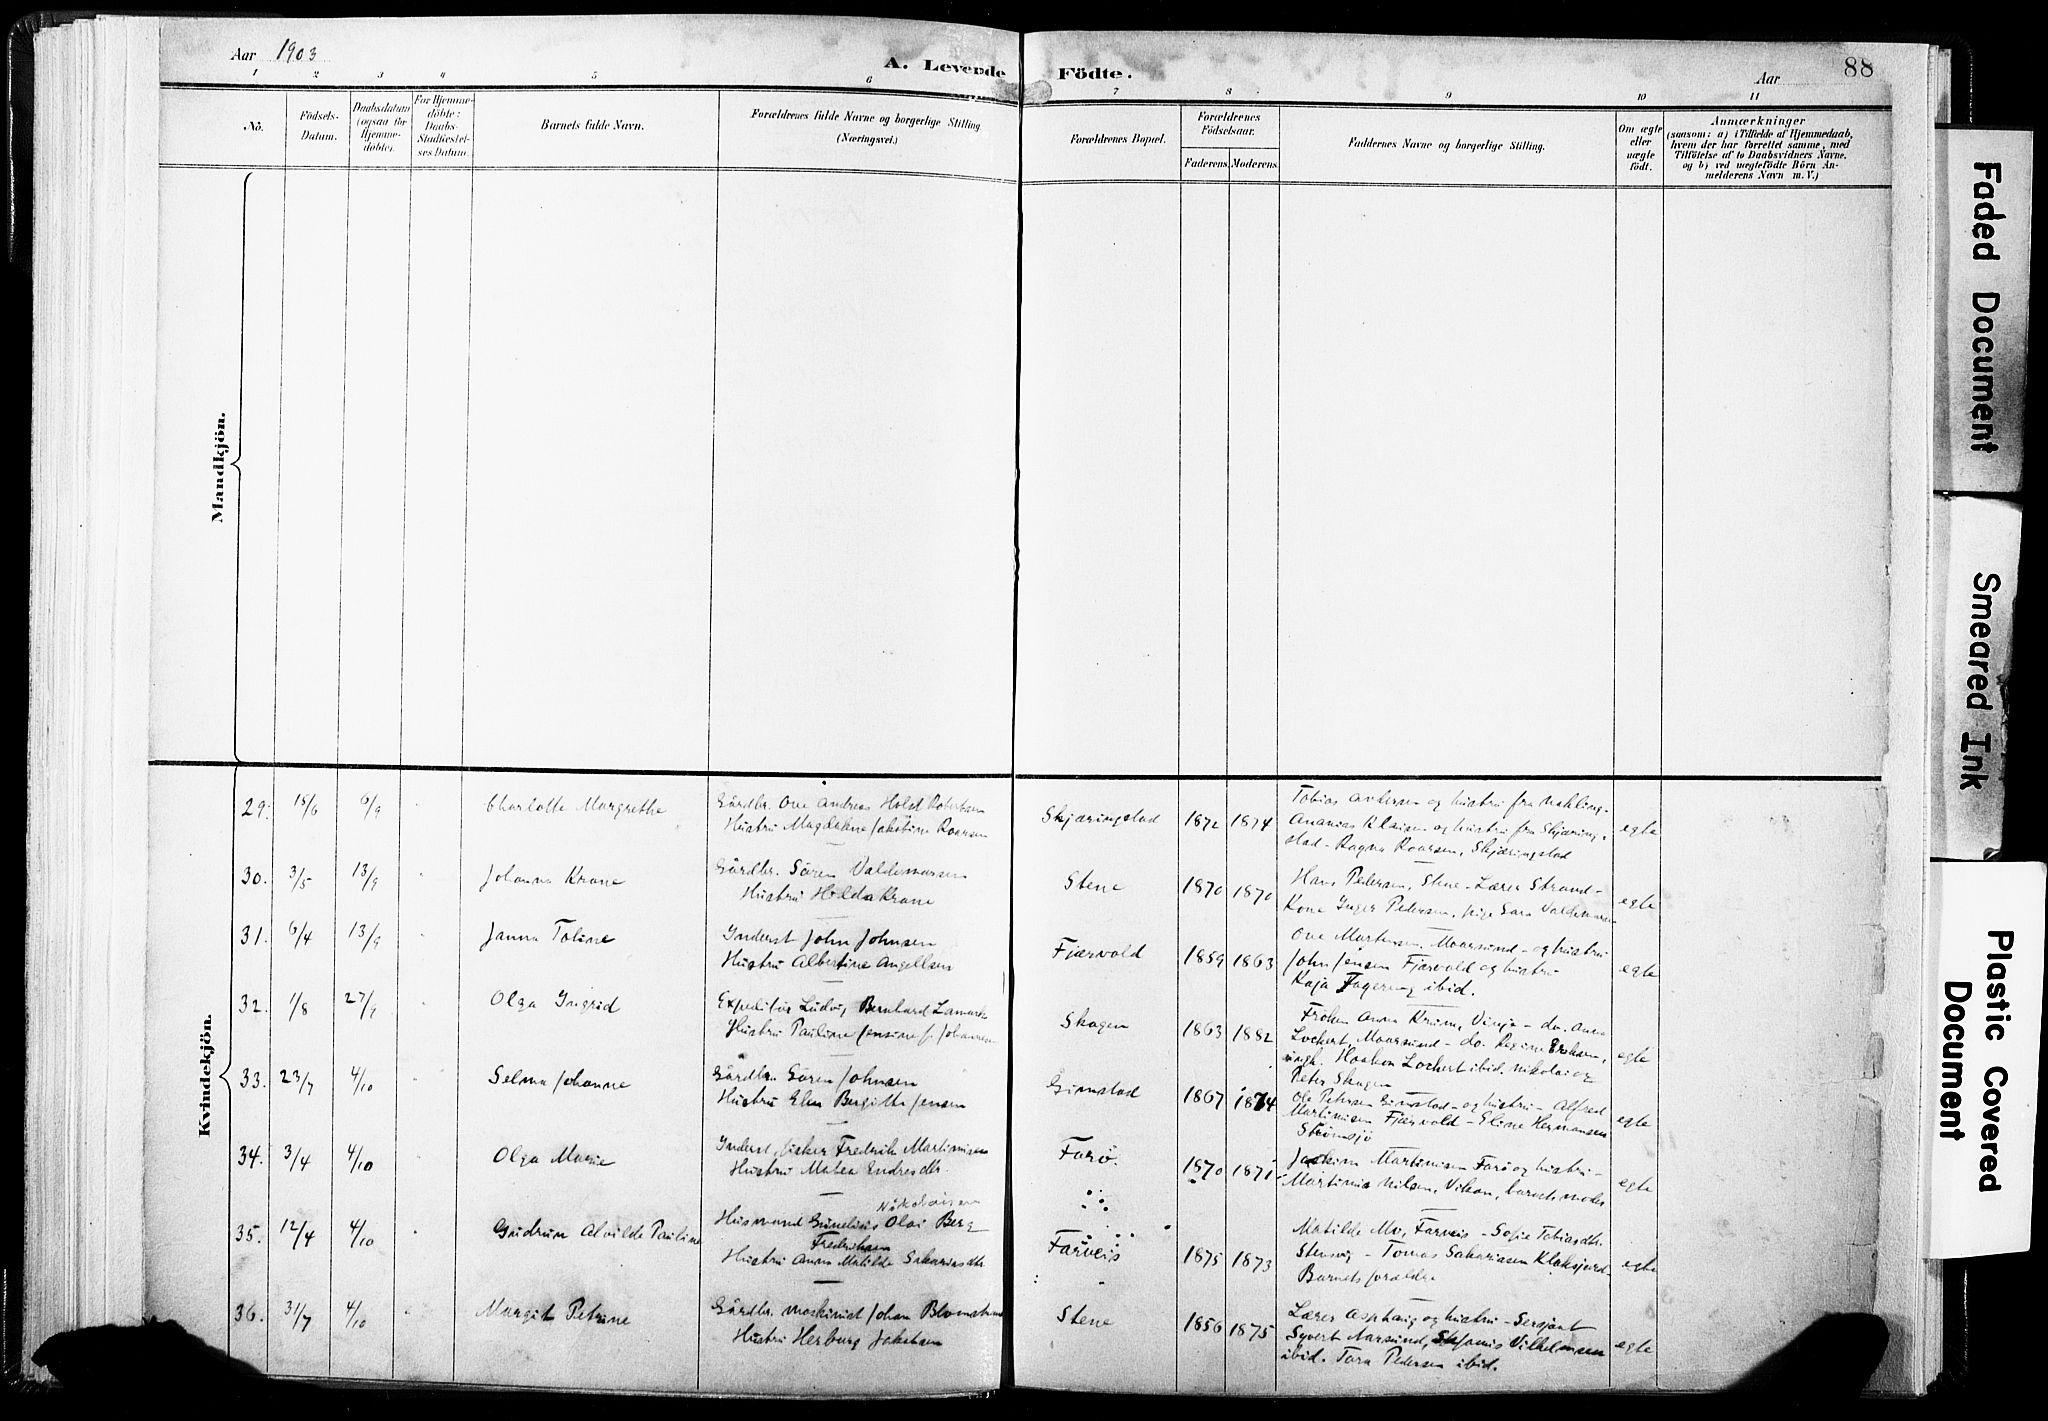 Aar 1903
A. Levende Födte.
Aar 88
1 2 3 4 5 6 7 8 9 10 11
No.
Födsels-Datum.
Daabsdatum (ogsaa for Hjemme-döbte).
For Hjemme-döbte: Daabs-Stadfæstel-ses Datum.
Barnets fulde Navn.
Forældrenes fulde Navne og borgerlige Stilling (Næringsvei.)
Forældrenes Bopæl.
Forældrenes Födselsaar.
Faderens. Moderens.
Faddernes Navne og borgerlige Stilling.
Om ægte eller uægte födt.
Anmærkninger
(saasom: a) i Tilfælde af Hjemmedaab,
hvem der har forrettet samme, med
Tilföielse af to Daabsvidners Navne,
og b) ved uægtefödte Börn An-
melderens Navn m. V.)
Mandkjön.
Kvindekjön.
29. 15/6 6/9 Charlotte Margrethe
Gårdbr. Ove Andreas Holst Robertsen
Hustru Magdalene Jakobine Roarsen
Skjæringstad 1872 1874
Tobias Andersen og hustru fra
Ananias Klausen og hustru fra Skjæring-
stad - Ragna Roarsen, Skjæringstad
egte
30. 3/5 13/9 Johanna Krane
Gårdbr. Sören Valdemarsen
Hustru Holda Krane
Stene 1870 1870
Hans Pedersen, Stene - Lærer Strand -
Kone Inger Pedersen, pige Sara Valdemarsen
egte
31. 6/4 13/9 Janna Toline
Inderst John Johnsen
Hustru Albertine Angellsen
Fjærvold 1859 1863
Ove Martensen, Maarsund - og hustru
John Jensen Fjærvold og hustru
Kaja Fagereng ibid.
egte
32. 1/8 27/9 Olga Ingrid
Expeditør Ludv. Bernhard Lamark
Hustru Pauline Jensine f. Johannesen
Skagen 1863 1882
Fröken Anna Krum, Vinje - do. Anna
Lockert, Maarsund - do. Regine
ungk. Haakon Lockert ibid. Nikolai og
Peter Skagen
egte
33. 23/7 4/10 Selma Johanne
Gårdbr. Sören Johnsen
Hustru Elen Bergitte Jensen
Gimstad 1867 1874
Ole Petersen Gimstad - og hustru - Alfred
Martinisen Fjærvold - Eline Hermansen
Strømsjö
egte
34. 3/4 4/10 Olga Marie
Inderst, fisker Fredrik Martinisen
Hustru Matea Endresdtr.
Farö. 1870 1871
Joakim Martinisen Farö og hustru -
Martinia Nilsen, Vikan, barnets moder
egte
35. 12/4 4/10 Gudrun Alvilde Pauline
Nikolaisen
Husmand Cornelius Olai Berg
Fredriksen
Hustru Anna Matilde Sakariasdtr.
Farveis 1875 1873
Matilde Mo, Farveis - Sofie Tobiasdtr.
Stensvig - Tomas Sakariasen Kloksjord -
Barnets forældre
egte
36. 31/7 4/10 Margit Petrine
Gårdbr. maskinist Johan Blomstrand
Hustru Herborg Jakobsen
Stene 1856 1875
Lærer Asphaug og hustru - Sersjant
Syvert Aarsund, Vilhelmsen
ibid. Tora Pedersen ibid.
egte
Faded Document
Smeared Ink
Plastic Covered Document